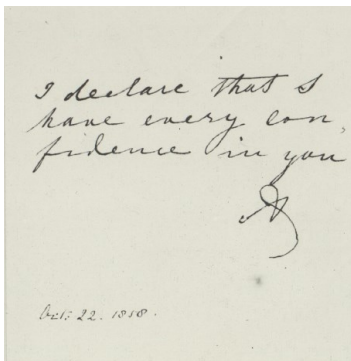 I declare that I
have every con,
fidence in you
A
Oct: 22. 1858.